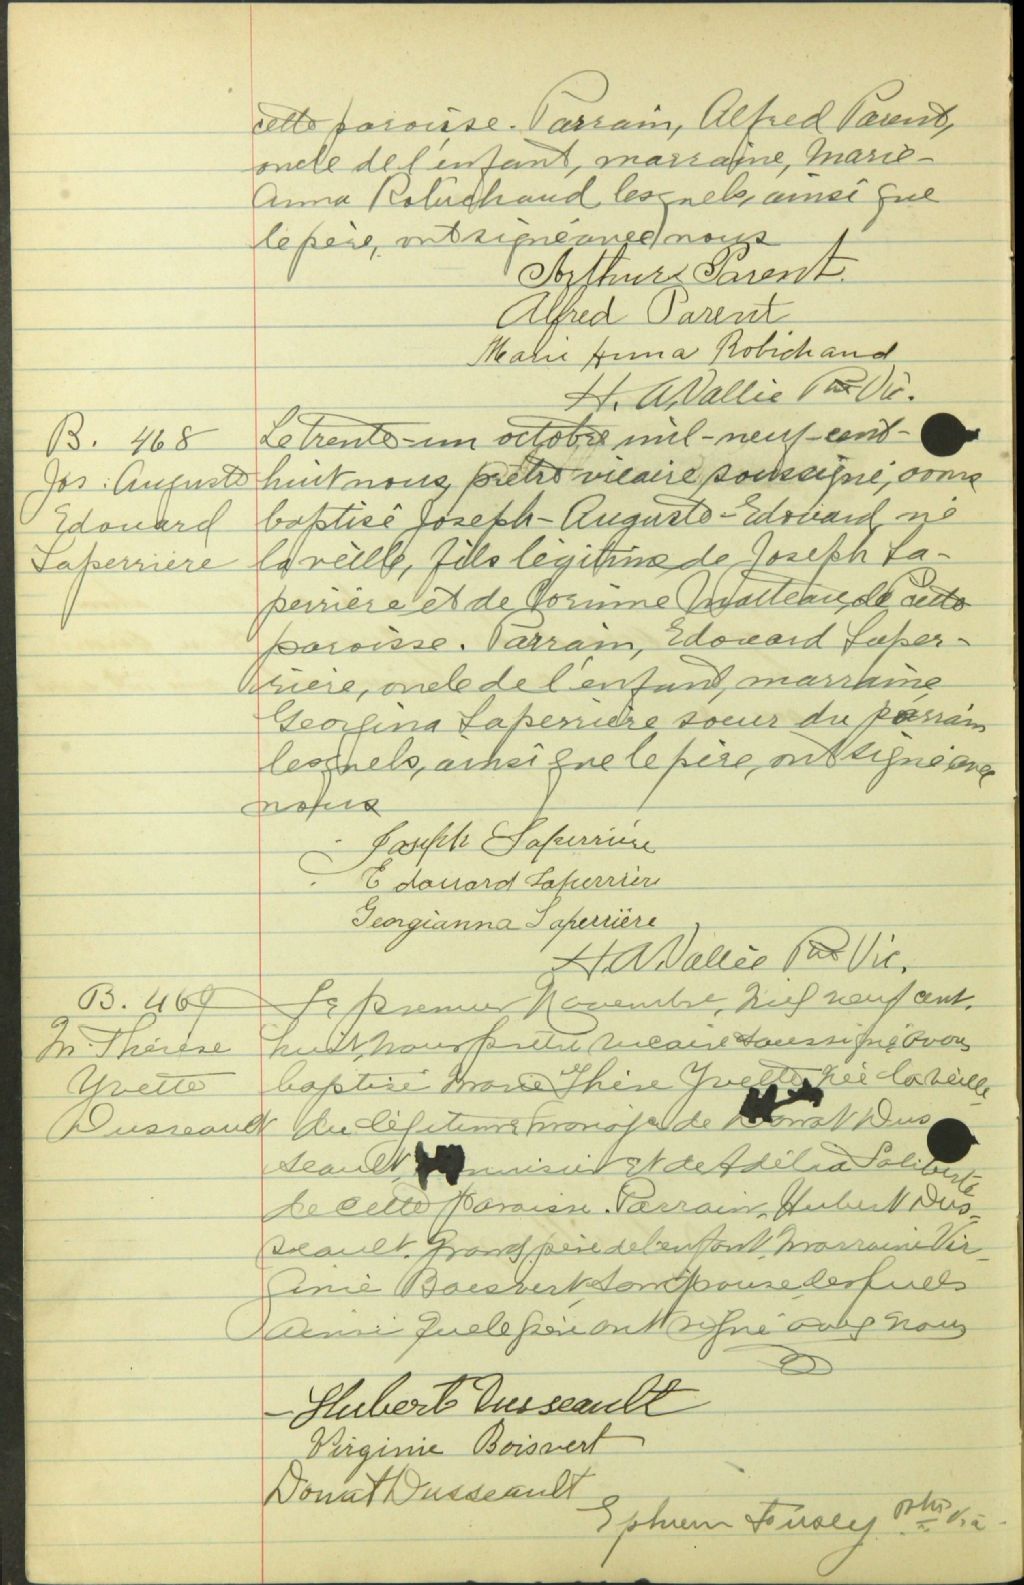 cette paroisse. Parrain, Alfred Parent,
oncle de l'enfant, marraine, Marie-
Anna Robichaud lesquels, ainsi que
le père, ont signé avec nous
Arthur Parent.
Alfred Parent
Marie Anna Robichaud
H. A. Vallée Ptre Vic.
B. 468
Jos. Auguste
Edouard
Laperrière
Le trente-un octobre mil-neuf-cent-
huit nous, prêtre vicaire soussigné, avons
baptisé Joseph-Auguste-Edouard, né
la veille, fils légitime de Joseph La-
perrière et de Corinne Matteau, de cette
paroisse. Parrain, Edouard Laper-
rière, oncle de l'enfant, marraine
Georgina Laperrière soeur du parrain
lesquels, ainsi que le père, ont signé avec
nous
Joseph Laperrière
Edouard Laperrière
Georgianna Laperrière
H. A. Vallée Ptre Vic.
B. 469
M. Thérèse
Yvette
Dusseault
Le premier Novembre, mil neuf cent.
huit, nous prêtre vicaire soussigné avons
baptisé Marie Thérèse Yvette, née la veille
du légitime mariage de Donat Dus
seault, menuisier et de Adélia Laliberté
de cette paroisse. Parrain, Hubert Dus-
seault. grand père de l'enfant. Marraine Vir-
ginie Boisvert son épouse lesquels
ainsi que le père ont signé avec nous
Hubert Dusseault
Virginie Boisvert
Donat Dusseault
Ephrem ptre Vic.